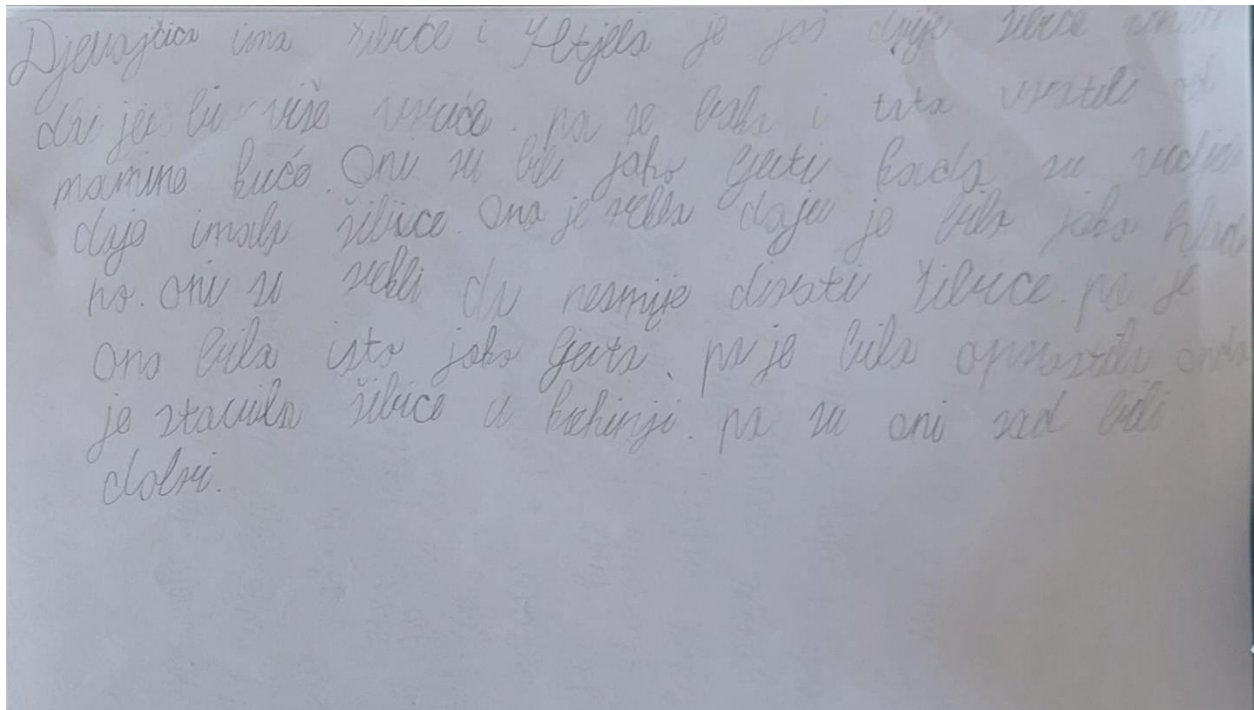 Djevojčica ima žibice i Htjela je još dvije žibice
da jei bi više vruće. pa se baka i tata vratili od
mamine kuće. Oni su bili jako ljuti kada su vidjeli
daje imala žibice. Ona je rekla daju je bila jako hlad
no. oni su rekli da nesmije dirati žibice. pa je
ona bila isto jako ljuta. pa je bila oprostila onda
je stavila žibice u kuhinji. pa su oni sad bili
dobri.